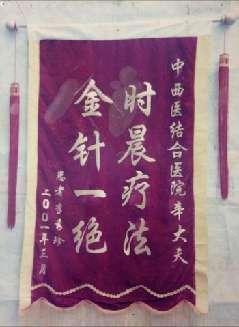 中西医结合医院辛大夫
时晨疗法
金针一绝
患者李秀珍
二〇〇一年三月